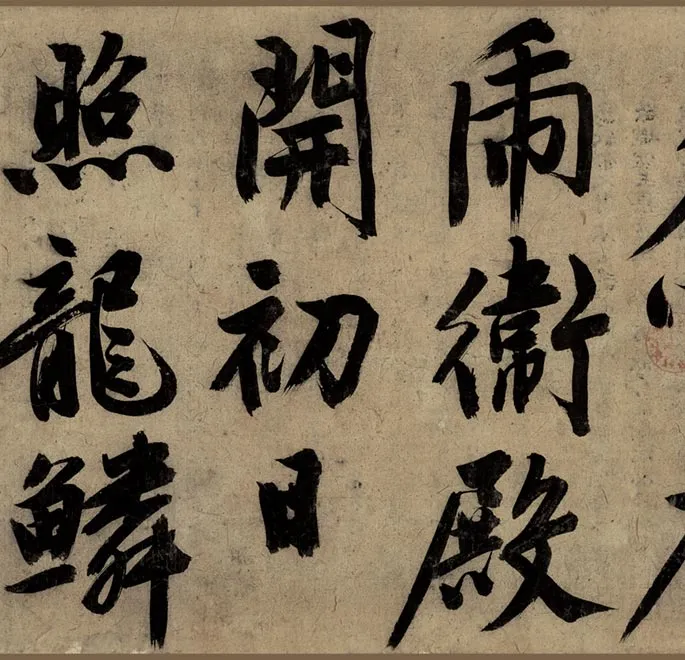 衛殿
開初日
照龍鱗